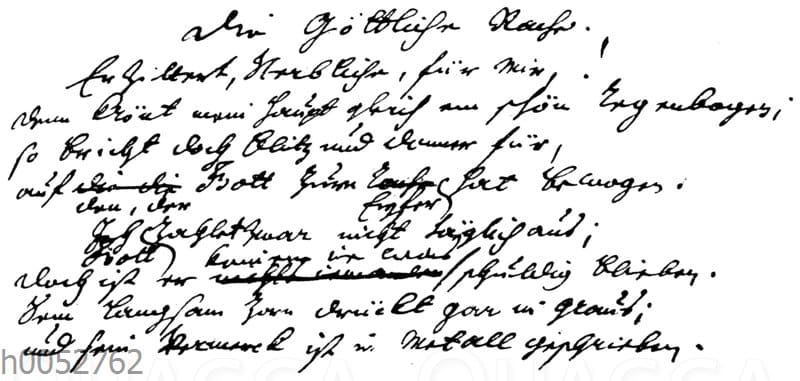 Die Göttliche Rache.
Erzittert, Sterbliche, für mir,!
denn krönt mein Haupt gleich ein schön Regenbogen;
so bricht doch Blitz und Donner für,
auf die die Gott zum Rache hat bewogen.
den, der Eyfer
Ich zahlet zwar nicht täglich aus;
Gott keinem ie was
doch ist er nichts iemanden schuldig blieben.
Sein langsam Zorn drückt gar in Graus;
und sein Kermerck ist in Metall geschrieben.
h0052762